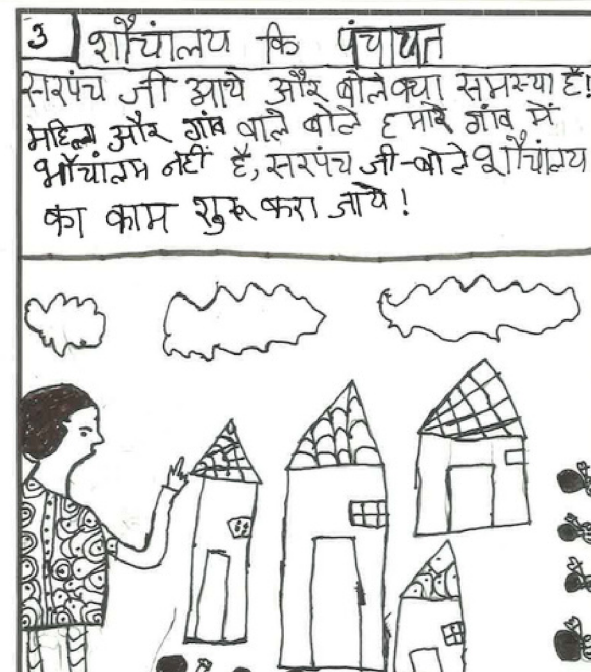 3 शौचांलय कि पंचायत
सरपंच जी आये और बोले क्या समस्या है!
महिला और गांव वाले बोले हमारे गांव में
शौचांलय नहीं है, सरपंच जी-बोले शौचांलय
का काम शुरू करा जाये!